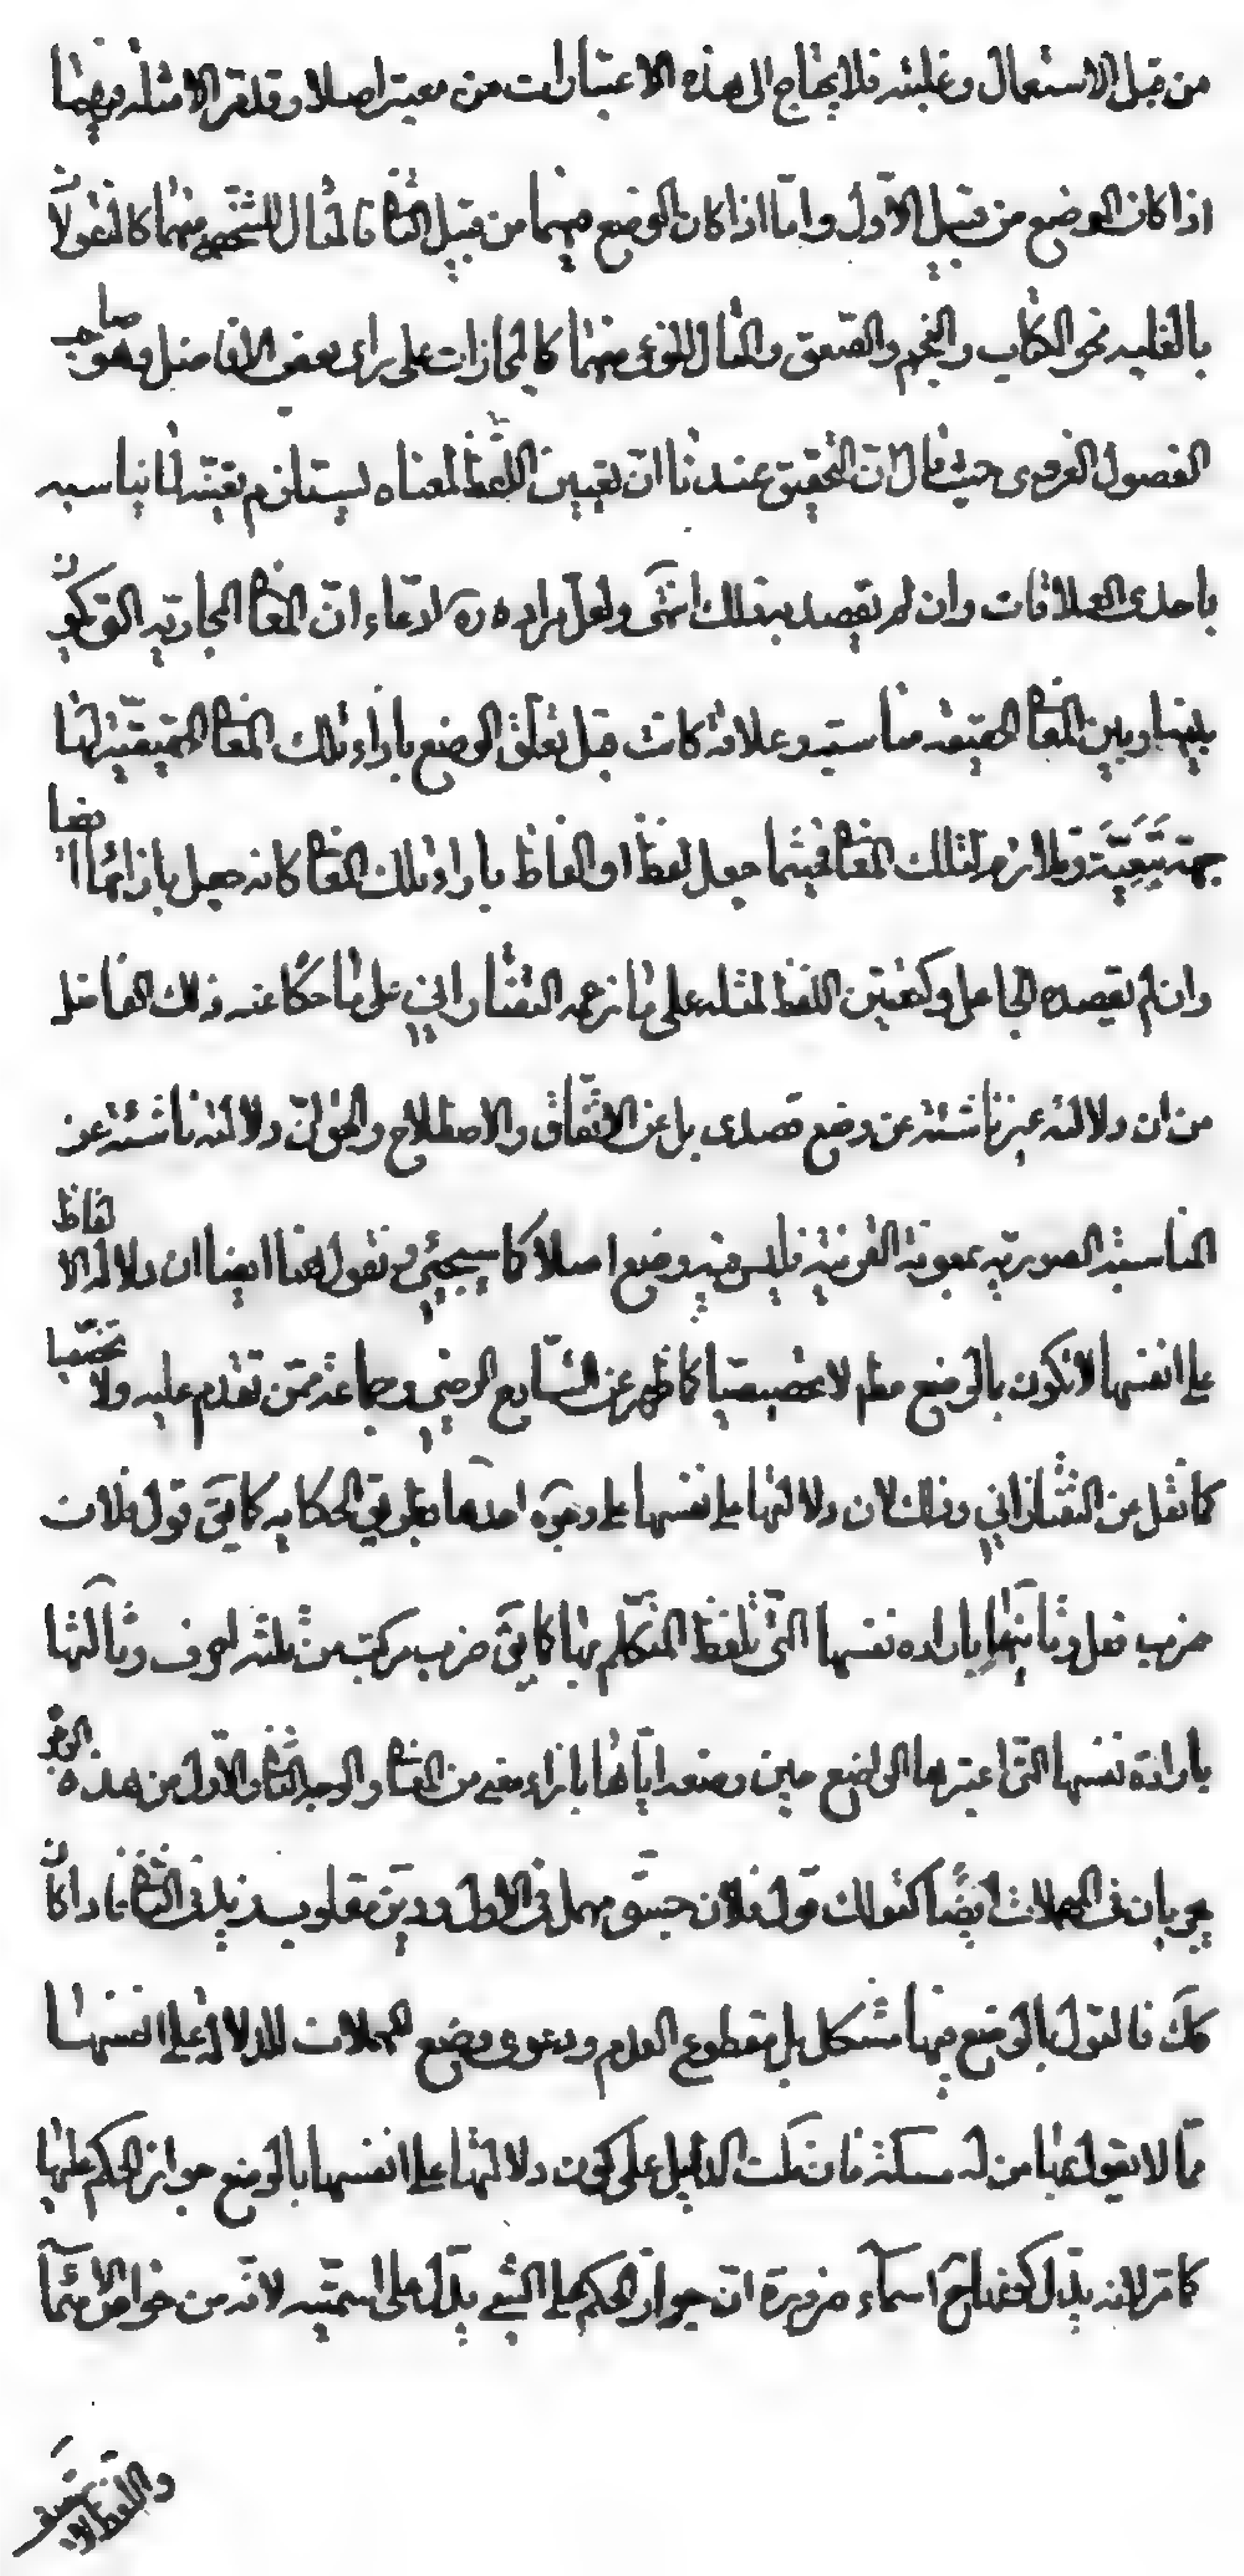 من قبل الاستعمال وغلبته فلا يحتاج الى هذه الاعتبارات من معتبر اصلا وقد تقر الامثلة فيهما
اذا كان الوضع من قبيل الاول وامّا اذا كان الوضع فيهما من قبيل الثانى فالمثال الشخصى منهما كالمنقولات
بالغلبه نحو الكتاب والنجم والصّعق والمثال النوعى منهما كالمجازات على راى بعض الافاضل وهو صاحب
الفصول الغروى حيث قال لانّ التحقيق عندنا انّ تعيين اللفظ لمعناه يستلزم تعيّنه لما يناسبه
باحدى العلاقات وان لم يقصد بذلك انتهى ولعل مراده ره لادعاء انّ المعانى المجازيّه التى يكون
بينها وبين المعانى الحقيقه مناسبة وعلاقة كانت قبل تعلّق الوضع بازاء تلك المعانى الحقيقيّه لها
جهة تبعيّة وتلازم لتلك المعانى فحيثما جعل لفظ او الفاظ بازاء تلك المعانى كانه جعل بازائها ايضا
وان لم يقصده الجاعل وكتعيّن اللفظ لمثله على ما زعمه التفتازانى على ما حكا عنه ذلك الفاضل
من ان دلالته غير ناشئة عن وضع قصدى بل عن الاتّفاق والاصطلاح والحق انّ دلالته ناشئة عن
المناسبة الصوريّه بمعونة القرينة فليس فيه وضع اصلا كما سيجيئ ونقول هنا ايضا ان دلالة الالفاظ
على انفسها لا تكون بالوضع مطلقا لا تخصيصيا كما ظهر عن الشارح الرضى وجماعة ممّن تقدم عليه ولا تخصّصيا
كما نقل عن التفتازانى وذلك لان دلالتها على نفسها على وجوه احدها بطريق الحكايه كما يقى قول فلان
ضرب فعل وثانيها بارادة نفسها التى تلفّظ المتكلم بها كما يقى ضرب مركب من ثلثة احرف وثالثها
بارادة نفسها التى اعتبرها الواضع حين وضعه ايّاها بازاء معنى من المعانى والوجه الثانى والاول من هذه الوجوه
يجريان فى المهملات ايضًا كقولك قول فلان جسق مهمل فى الاول وديز مقلوب زيد فى الثانى فاذا كان
كك فالقول بالوضع فيها مشكل بل مقطوع العدم ودعوى وضع المهملات للدلالة على انفسها
ممّا لا يقول بها من له مسكة فان قلت الدليل على كون دلالتها على انفسها بالوضع جواز الحكم عليها
كما مر لانه يدلّ كونها ح اسماء ضرورة انّ جواز الحكم على الشئ يدلّ على اسميّته لانّه من خواص الاسماء